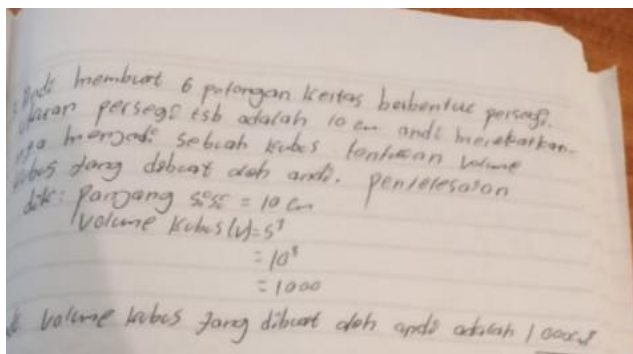 Andi membuat 6 potongan kertas berbentuk persegi.
ukuran persegi tsb adalah 10 cm andi merekatkan-
nya menjadi sebuah kubus tentukan volume
kubus yang dibuat oleh andi. penyelesaian
dik: panjang sisi = 10 cm
volume kubus (v) = s³
= 10³
= 1000
volume kubus yang dibuat oleh andi adalah